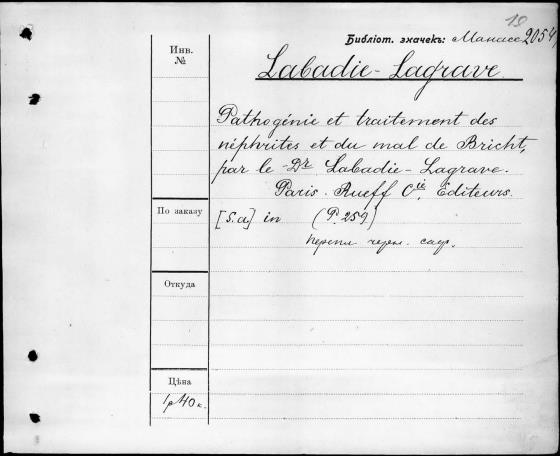 19
Библіот. значекъ: Манасс 2054
Инв.
№
Labadie-Lagrave
Pathogénie et traitement des
néphrites et du mal de Bricht,
par le Dr Labadie-Lagrave.
Paris. Rueff Cie, Éditeurs.
По заказу
[S.a] in (P. 259)
Перепл.
Откуда
Цѣна
1 р 40 к.